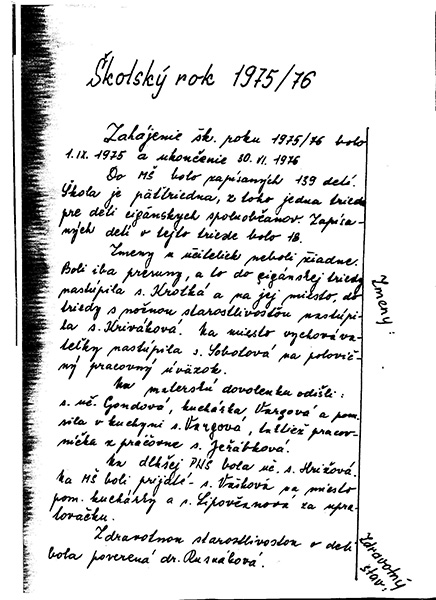 Školský rok 1975/76
Zahájenie šk. roku 1975/76 bolo
1. IX. 1975 a ukončenie 30. VI. 1976
Do MŠ bolo zapísaných 139 detí.
Škola je päťtriedna, z toho jedna trieda
pre deti cigánskych spoluobčanov. Zapísa-
ných detí v tejto triede bolo 18.
Zmeny u učiteliek neboli žiadne.
Boli iba presuny, a to do cigánskej triedy
nastúpila s. Krotká a na jej miesto do
triedy s nočnou starostlivosťou nastúpi-
la s. Kriváková. Na miesto vychováva-
teľky nastúpila s. Sobotová na polovič-
ný pracovný úväzok.
Na materskú dovolenku odišli:
s. uč. Gondová, kuchárka Vargová a pom.
sila v kuchyni s. Vargová, taktiež pracov-
níčka z práčovne s. Jeřábková.
Na dlhšej PNŠ bola uč. s. Hrižová.
Na MŠ boli prijaté - s. Vaiková na miesto
pom. kuchárky a s. za upra-
tovačku.
Zdravotnou starostlivosťou o deti
bola poverená dr. Rusnáková.
Zmeny:
Zdravotný
stav: